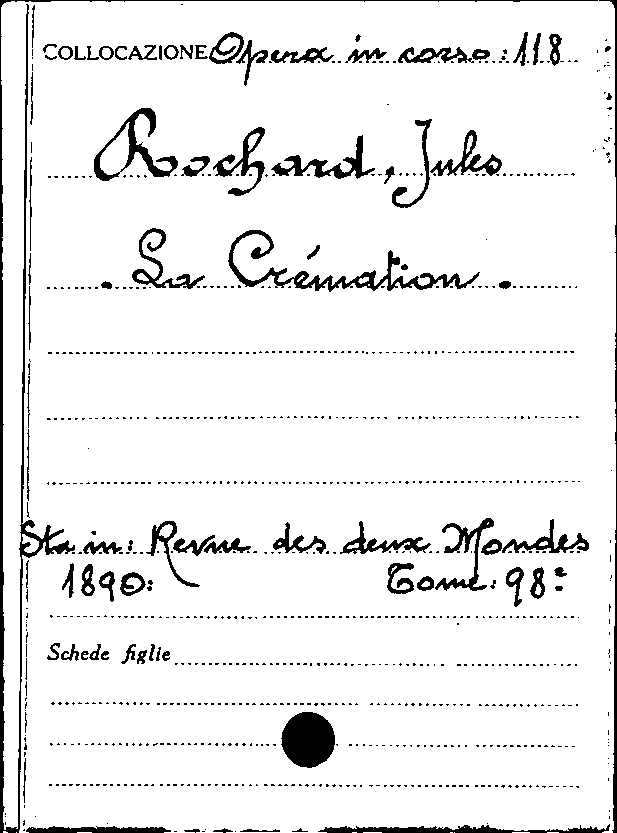 COLLOCAZIONE Opera in corso: 118
Rochard, Jules
. La Crémation .
Sta in: Revue des deux Mondes
1890: Tome: 98e
Schede figlie